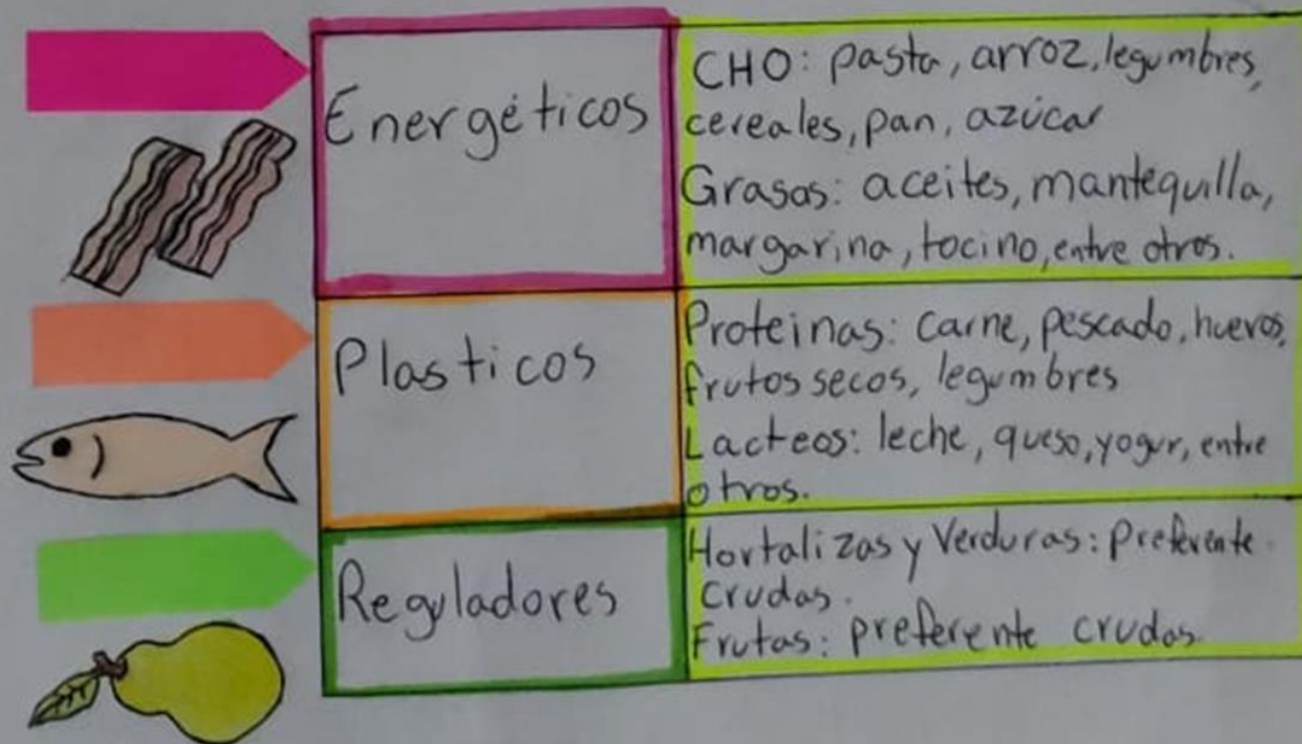 Energéticos
CHO: pasta, arroz, legumbres,
cereales, pan, azúcar
Grasas: aceites, mantequilla,
margarina, tocino, entre otros.
Plasticos
Proteinas: Carne, pescado, huevos,
frutos secos, legumbres
Lacteos: leche, queso, yogur, entre
otros.
Reguladores
Hortalizas y Verduras: preferente
crudas.
Frutas: preferente crudas